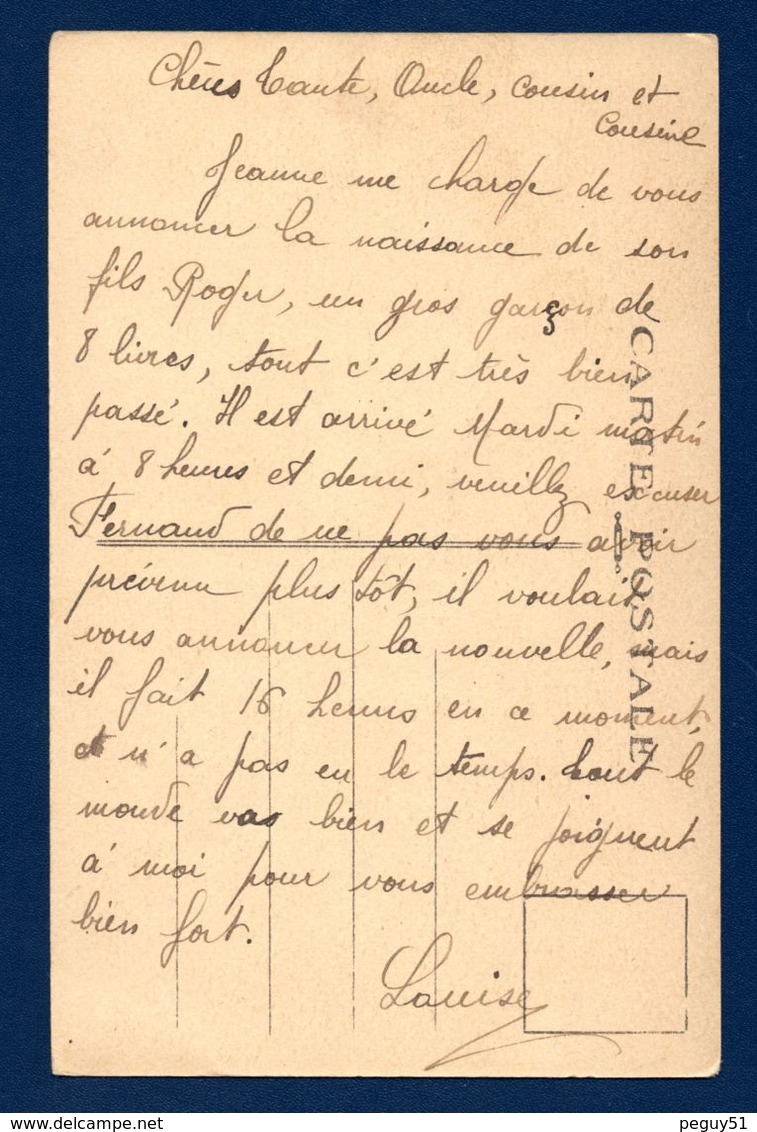 Chères Tante, Oncle, cousin et
Cousine
Jeanne me charge de vous
annoncer la naissance de son
fils Roger, un gros garçon de
8 livres, tout c'est très bien
passé. Il est arrivé Mardi matin
à 8 heures et demi, veuillez excuser
Fernand de ne pas vous avoir
prévenu plus tôt, il voulait
vous annoncer la nouvelle, mais
il fait 16 heures en ce moment,
et n'a pas eu le temps. Tout le
monde vas bien et se joignent
à moi pour vous embrasser
bien fort.
Louise
CARTE POSTALE
peguy51
delcampe.net